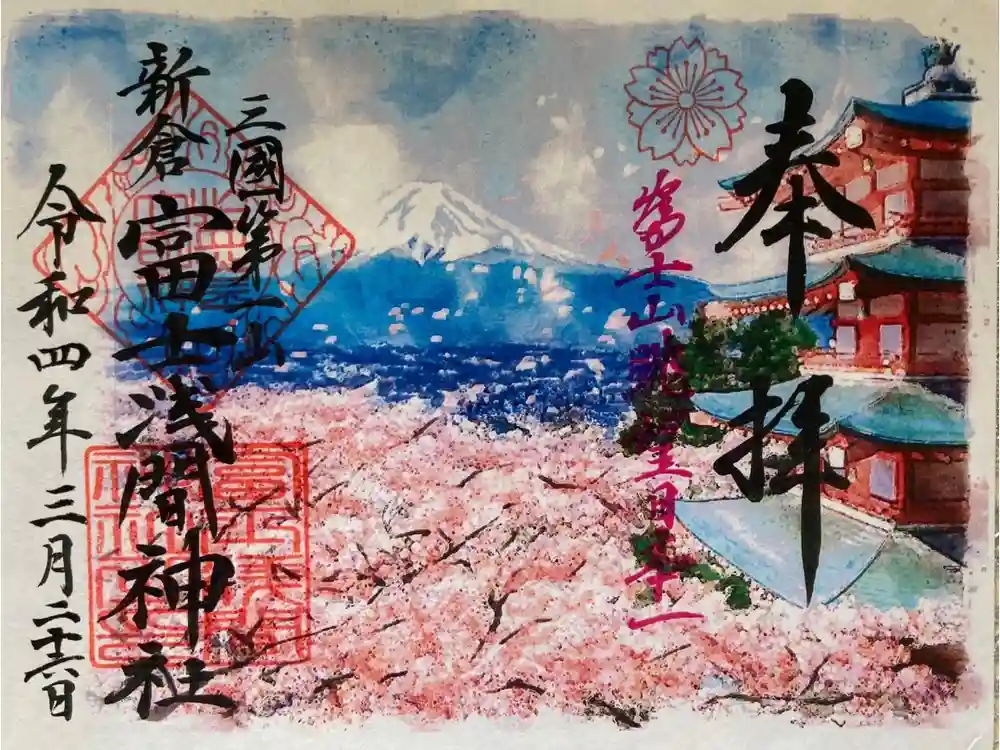 奉拝
富士山眺望日本一
三國第一山
新倉富士浅間神社
令和四年三月二十六日